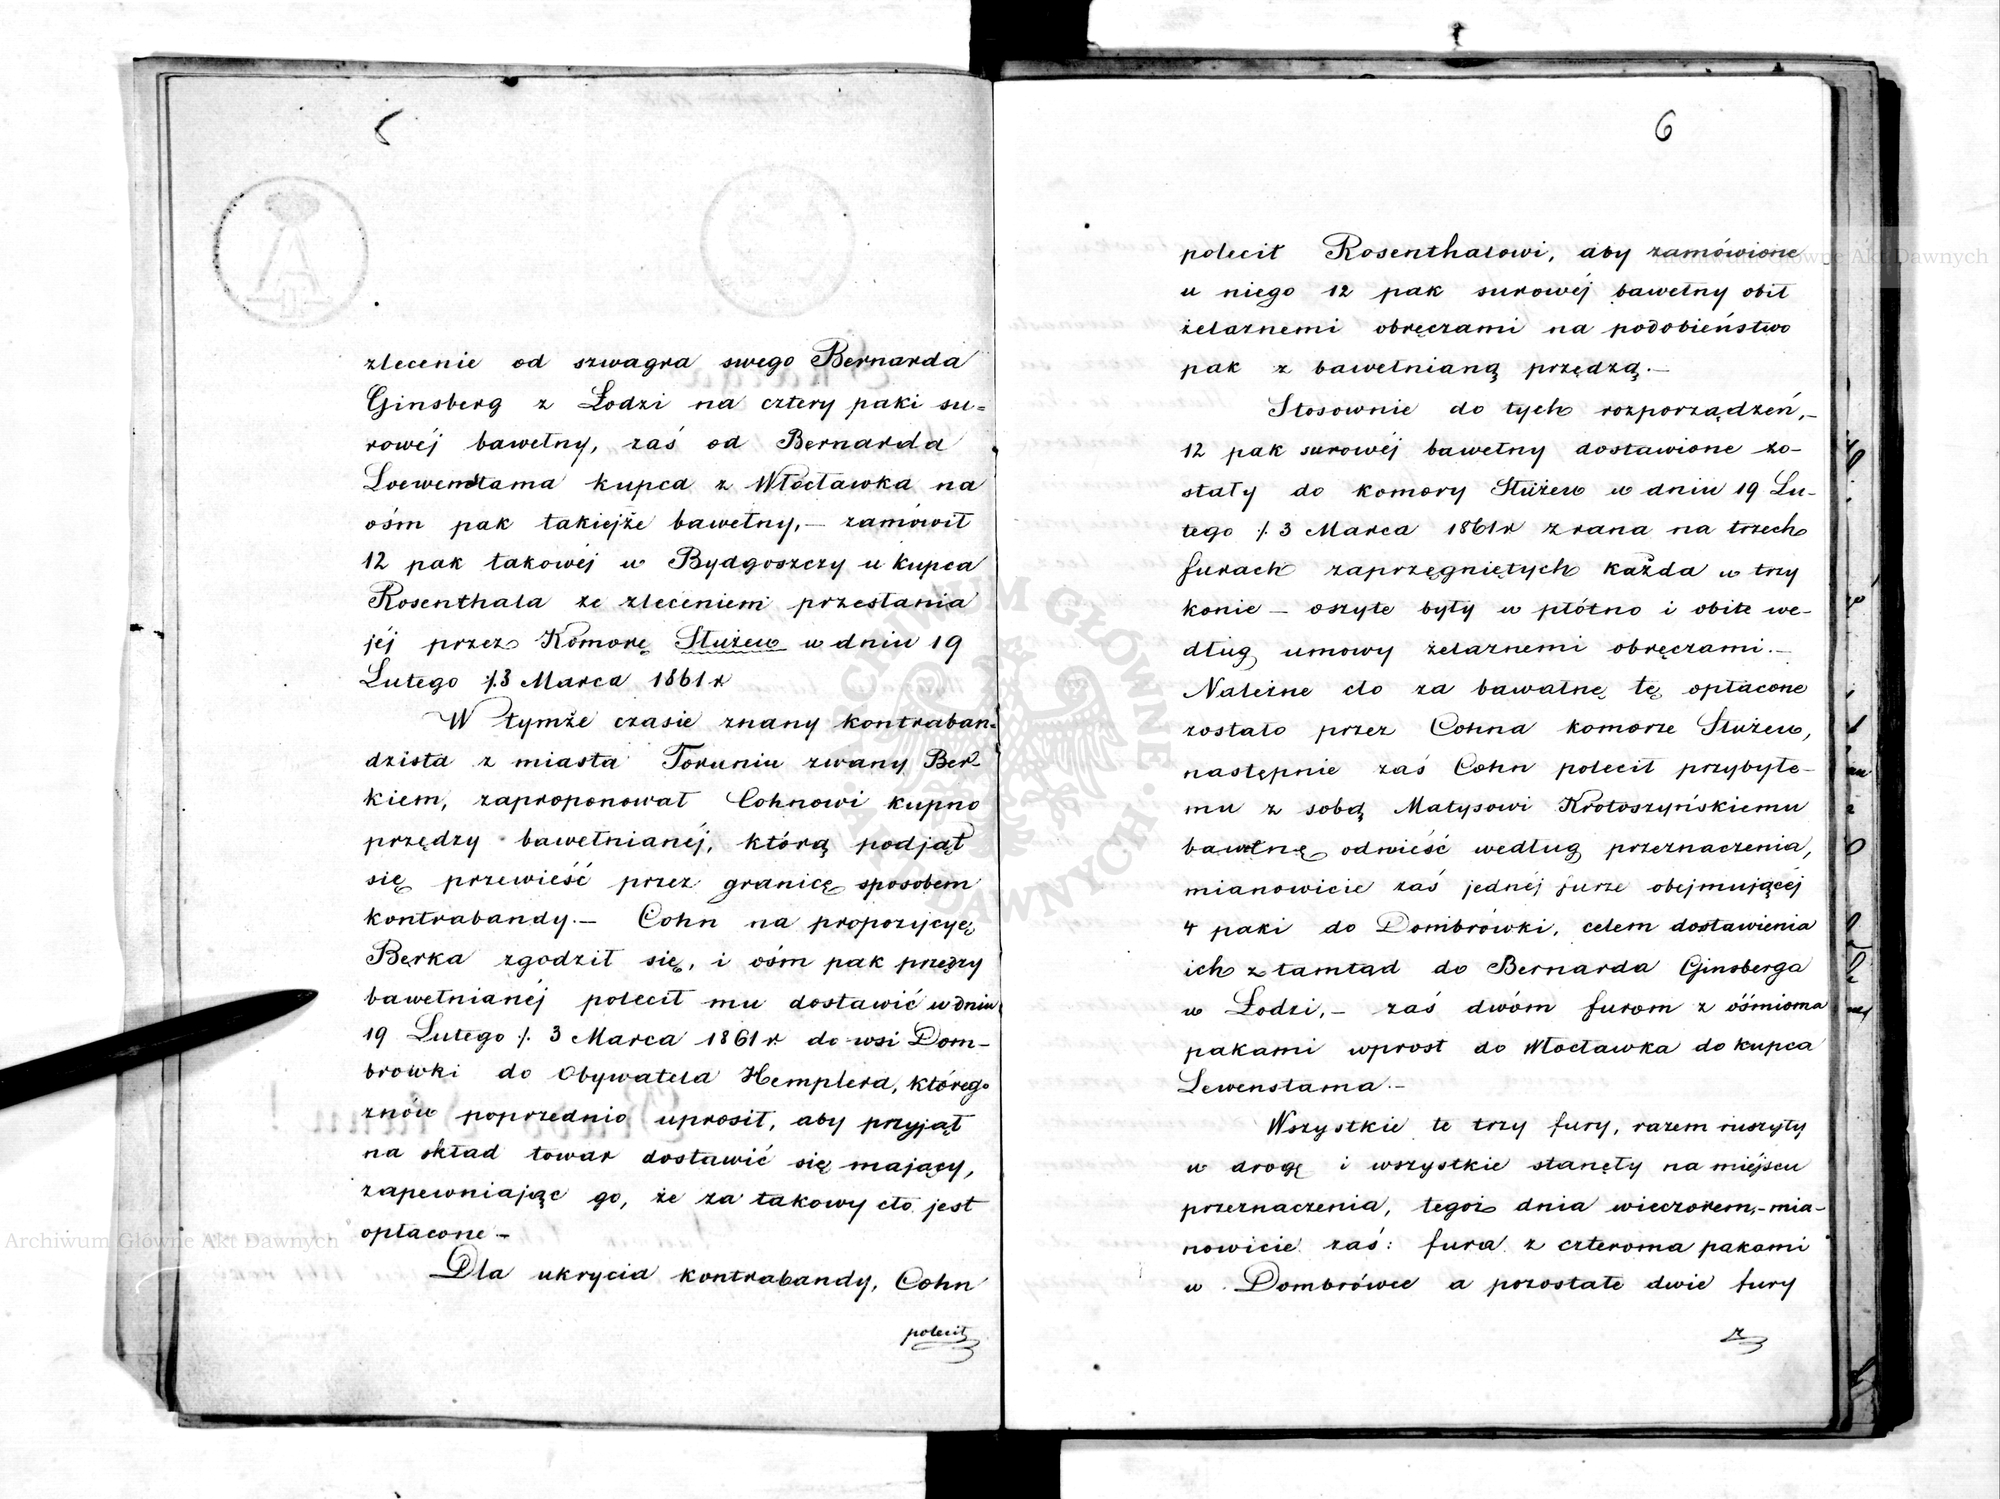 zlecenie od szwagra swego Bernarda
Ginsberg z Łodzi na cztery paki su=
rowéj bawełny, zaś od Bernarda
Loewenstama kupca z Włocławka na
ośm pak takiejże bawełny,- zamówił
12 pak takowéj w Bydgoszczy u kupca
Rosenthala ze zleceniem przesłania
jéj przez Komorę Służew w dniu 19
Lutego /. 3 Marca 1861 r
W tymże czasie znany kontraban=
dzista z miasta Toruniu zwany Ber-
kiem, zaproponował Cohnowi kupno
przędzy bawełnianéj, którą podjął
się przewieść przez granicę sposobem
kontrabandy.- Cohn na propozycyę
Berka zgodził się, i ośm pak przęzy
bawełnianéj polecił mu dostawić w dniu
19 Lutego /. 3 Marca 1861 r. do wsi Dom-
browki do Obywatela Hemplera, którego
znów poprzednio uprosił, aby przyjął
na skład towar dostawić się mający,
zapewniając go, że za takowy cło jest
opłacone -
Dla ukrycia kontrabandy, Cohn
polecił
6
polecił Rosenthalowi, aby zamówione
u niego 12 pak surowéj bawełny obił
żelaznemi obręczami na podobieństwo
pak z bawełnianą przędzą.-
Stosownie do tych rozporządzeń,-
12 pak surowéj bawełny dostawione zo-
stały do komory Służew w dniu 19 Lu-
tego /. 3 Marca 1861 r z rana na trzech
furach zaprzęgniętych każda w trzy
konie - oszyte były w płótno i obite we-
dług umowy żelaznemi obręczami.-
Należne cło za bawałnę tę opłacone
zostało przez Cohna komorze Służew,
następnie zaś Cohn polecił przybyłe-
mu z sobą Matysowi Krotoszyńskiemu
bawełnę odwieść według przeznaczenia,
mianowicie zaś jednéj furze obejmującéj
4 paki do Dombrówki, celem dostawienia
ich z tamtąd do Bernarda Ginsberga
w Łodzi,- zaś dwóm furom z ośmioma
pakami wprost do Włocławka do kupca
Lewenstama.-
Wszystkie te trzy fury, razem ruszyły
w drogę i wszystkie stanęły na miejscu
przeznaczenia, tegoż dnia wieczorem,- mia-
nowicie zaś: fura z czteroma pakami
w Dombrówce a pozostałe dwie fury
z
Archiwum Główne Akt Dawnych
Archiwum Główne Akt Dawnych
ARCHIWUM GŁÓWNE AKT DAWNYCH